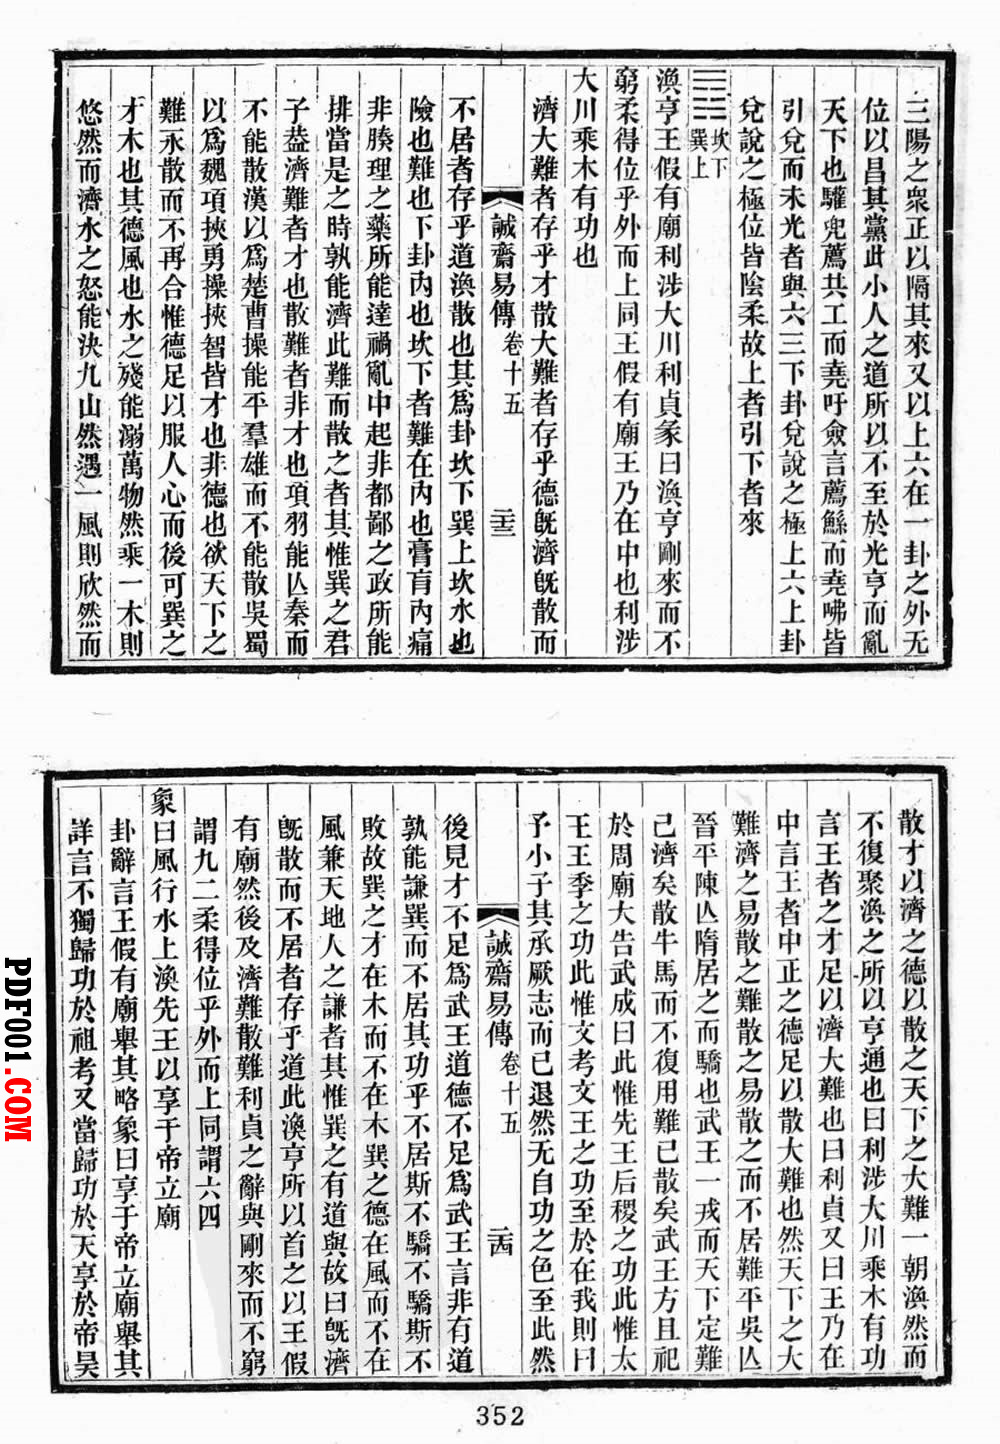 三陽之衆正以隔其來又以上六在一卦之外无
位以昌其黨此小人之道所以不至於光亨而亂
天下也驩兜薦共工而堯吁僉言薦鯀而堯咈皆
引兌而未光者與六三下卦兌說之極上六上卦
兌說之極位皆陰柔故上者引下者來
坎下
巽上
渙亨王假有廟利涉大川利貞彖曰渙亨剛來而不
窮柔得位乎外而上同王假有廟王乃在中也利涉
大川乘木有功也
濟大難者存乎才散大難者存乎德旣濟旣散而
誠齋易傳 卷十五 二十三
不居者存乎道渙散也其爲卦坎下巽上坎水也
險也難也下卦內也坎下者難在內也膏肓內痛
非腠理之藥所能達禍亂中起非都鄙之政所能
排當是之時孰能濟此難而散之者其惟巽之君
子葢濟難者才也散難者非才也項羽能亾秦而
不能散漢以爲楚曹操能平羣雄而不能散吳蜀
以爲魏項挾勇操挾智皆才也非德也欲天下之
難永散而不再合惟德足以服人心而後可巽之
才木也其德風也水之殘能溺萬物然乘一木則
悠然而濟水之怒能決九山然遇一風則欣然而
散才以濟之德以散之天下之大難一朝渙然而
不復聚渙之所以亨通也曰利涉大川乘木有功
言王者之才足以濟大難也曰利貞又曰王乃在
中言王者中正之德足以散大難也然天下之大
難濟之易散之難散之易散之而不居難平吳亾
晉平陳亾隋居之而驕也武王一戎而天下定難
己濟矣散牛馬而不復用難已散矣武王方且祀
於周廟大告武成曰此惟先王后稷之功此惟太
王王季之功此惟文考文王之功至於在我則曰
予小子其承厥志而已退然无自功之色至此然
誠齋易傳 卷十五 二十四
後見才不足爲武王道德不足爲武王言非有道
孰能謙巽而不居其功乎不居斯不驕不驕斯不
敗故巽之才在木而不在木巽之德在風而不在
風兼天地人之謙者其惟巽之有道與故曰旣濟
旣散而不居者存乎道此渙亨所以首之以王假
有廟然後及濟難散難利貞之辭與剛來而不窮
謂九二柔得位乎外而上同謂六四
象曰風行水上渙先王以享于帝立廟
卦辭言王假有廟舉其略象曰享于帝立廟舉其
詳言不獨歸功於祖考又當歸功於天享於帝昊
352
PDF001.COM